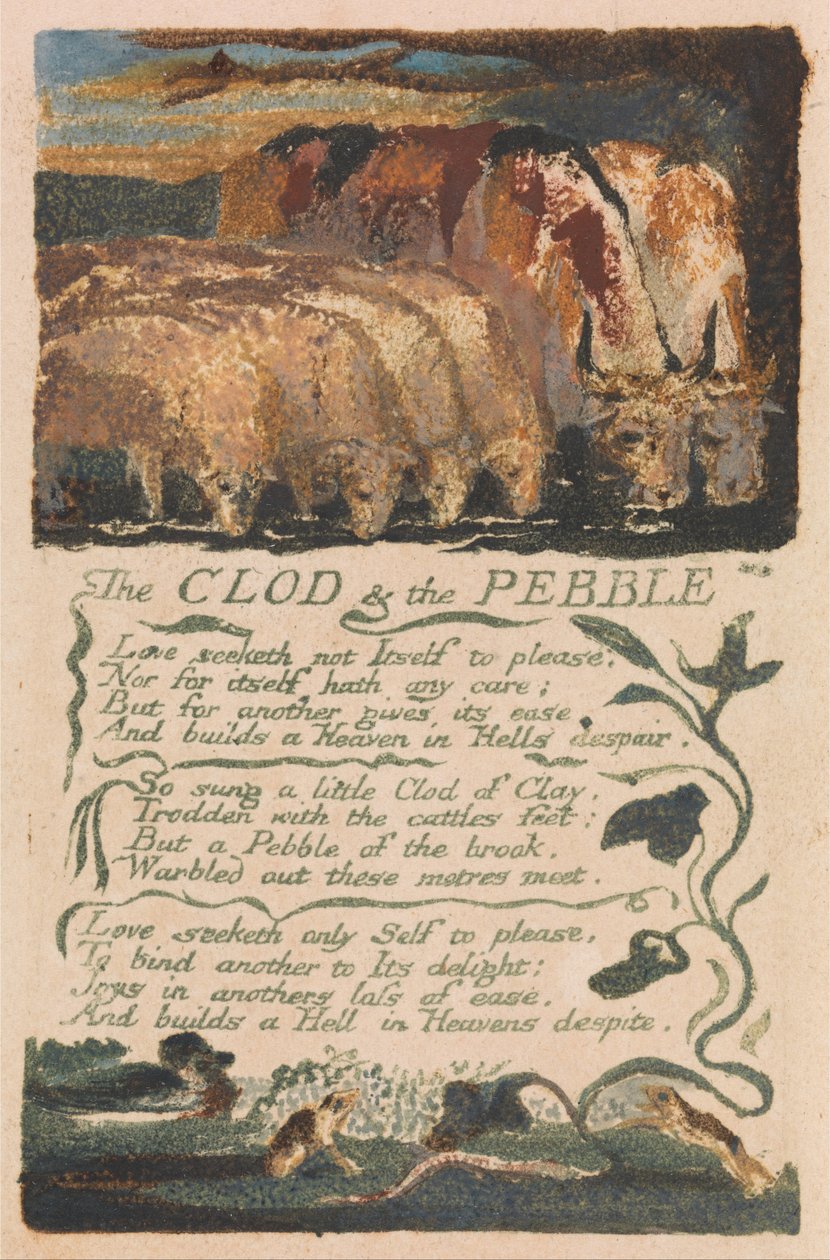 The CLOD & the PEBBLE
Love seeketh not Itself to please,
Nor for itself hath any care;
But for another gives its ease,
And builds a Heaven in Hells despair.
So sung a little Clod of Clay,
Trodden with the cattles feet:
But a Pebble of the brook,
Warbled out these metres meet.
Love seeketh only Self to please,
To bind another to Its delight:
Joys in anothers loſs of ease,
And builds a Hell in Heavens despite.